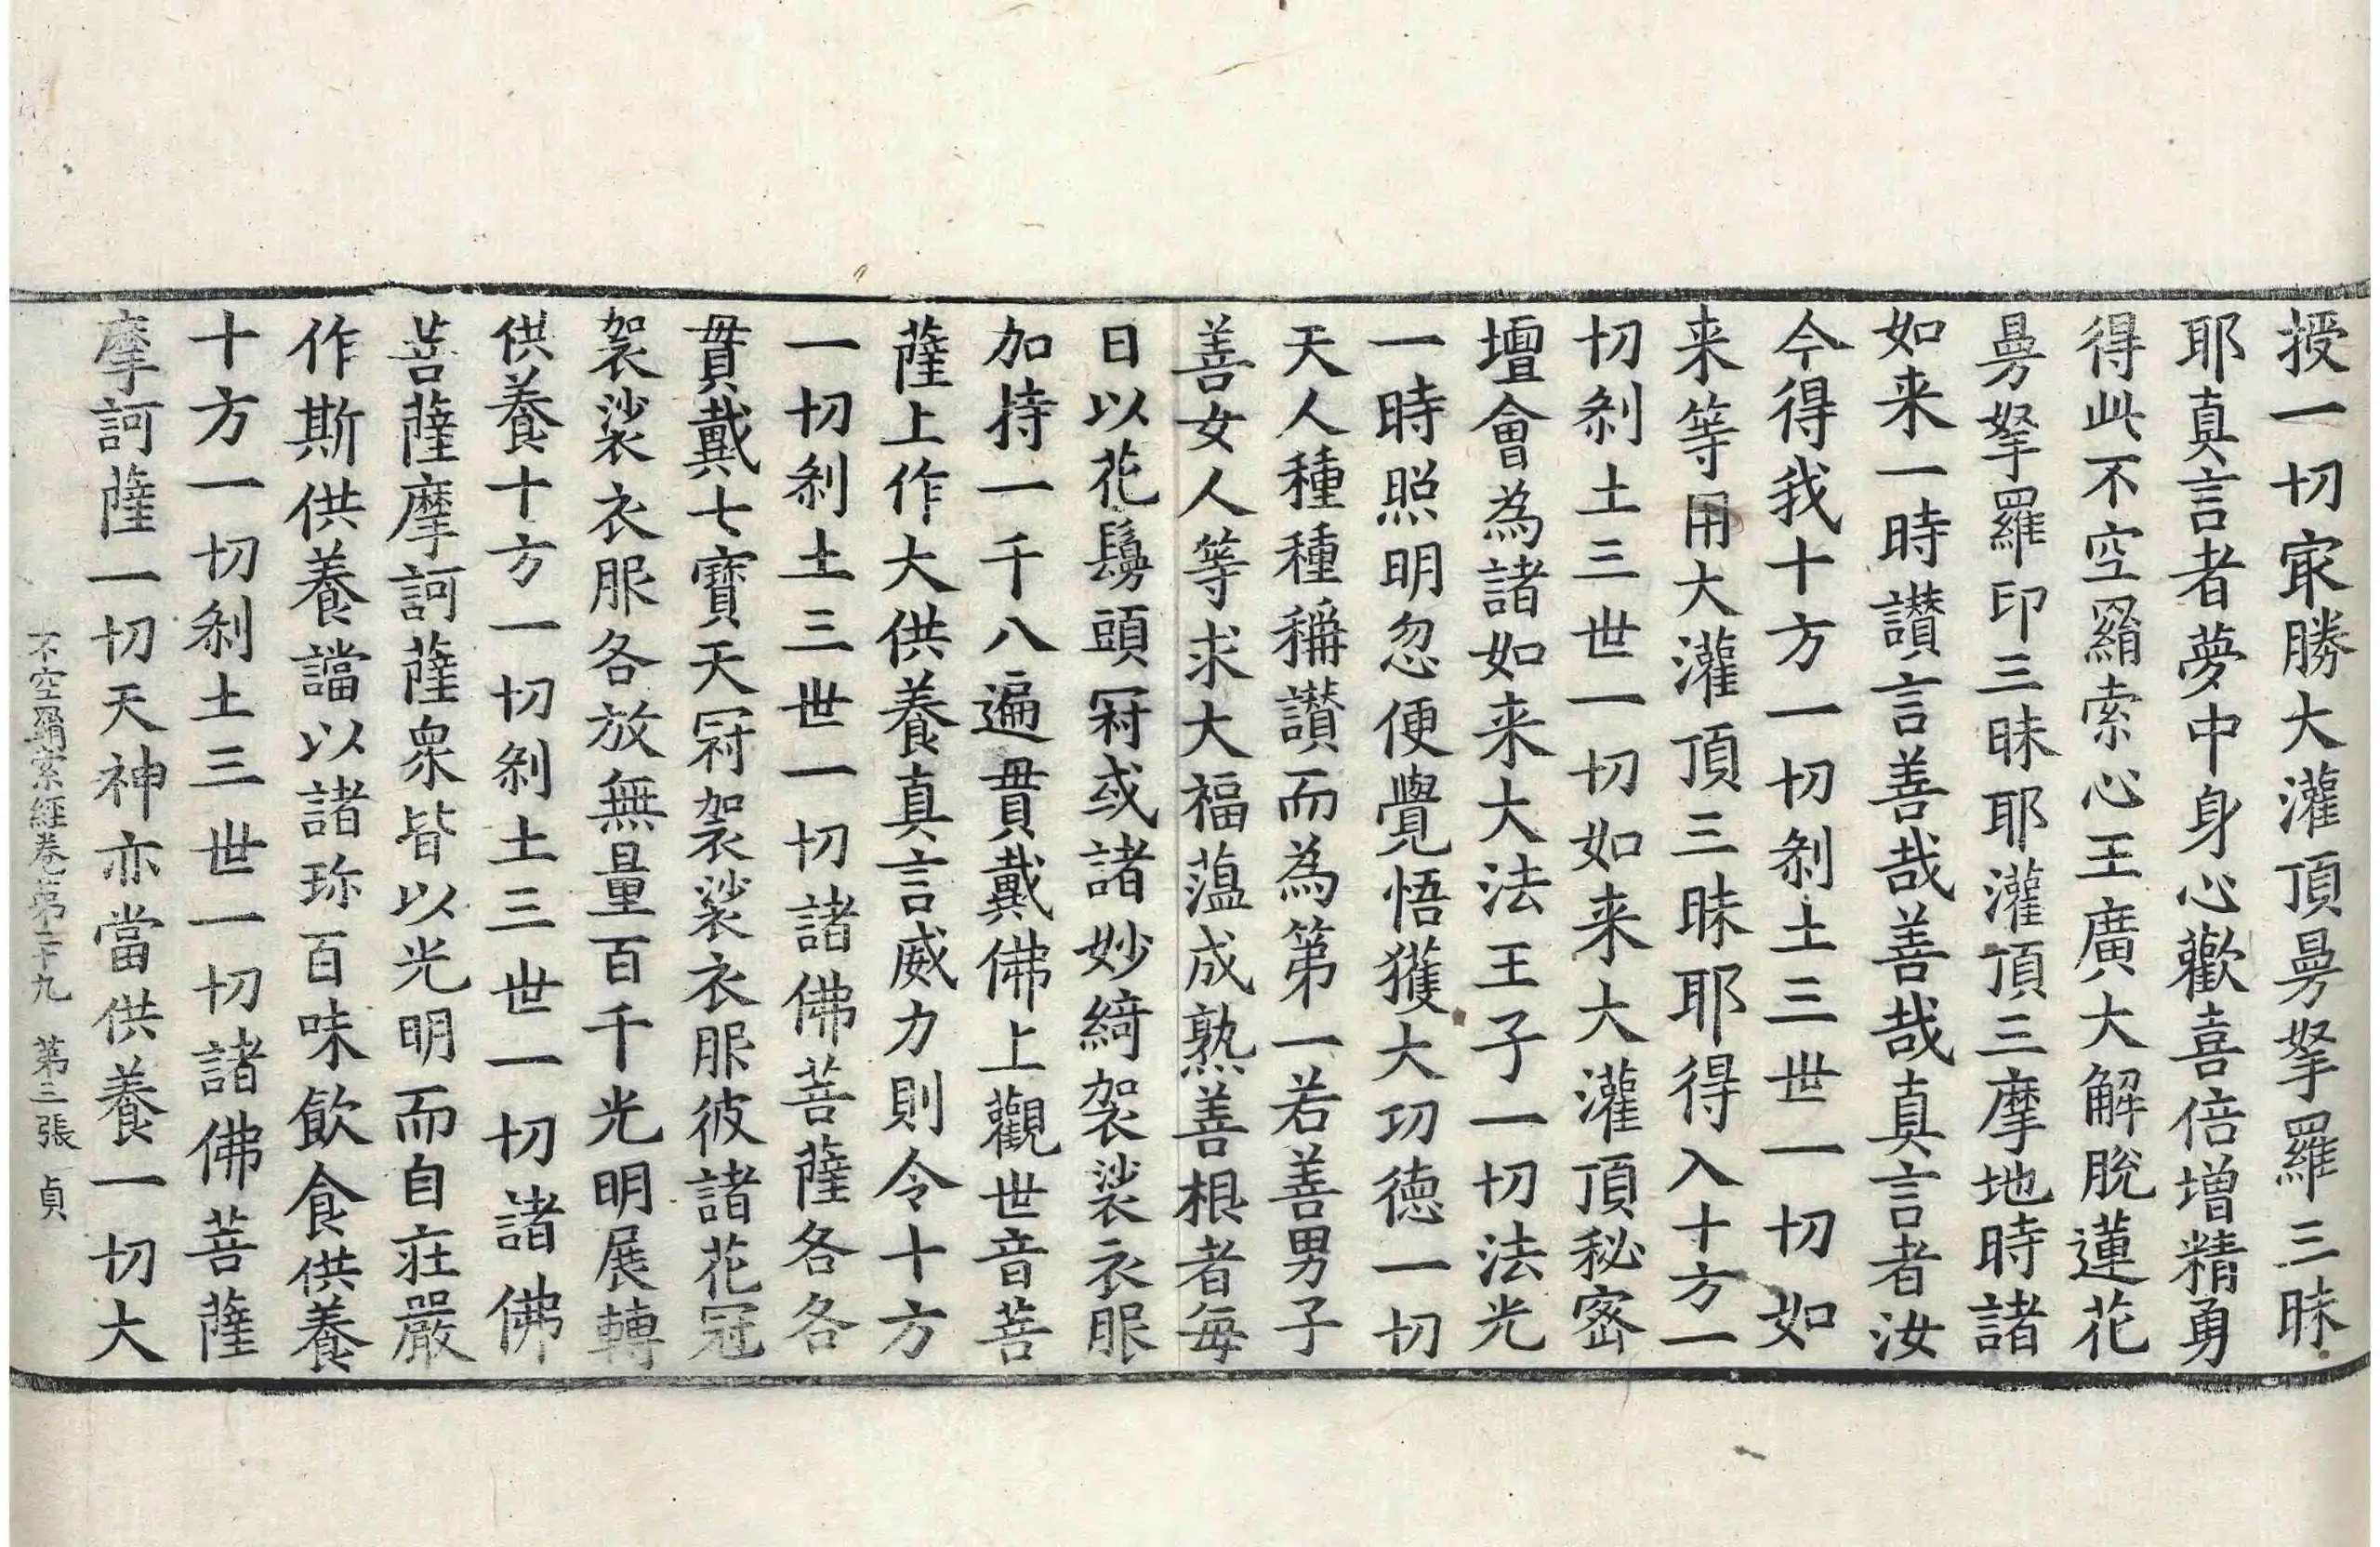 授一切冣勝大灌頂㬅拏羅三昧
耶真言者夢中身心歡喜倍增精勇
得此不空羂索心王廣大解脫蓮花
㬅拏羅印三昧耶灌頂三摩地時諸
如来一時讃言善哉善哉真言者汝
今得我十方一切剎土三世一切如
来等用大灌頂三昧耶得入十方一
切剎土三世一切如来大灌頂秘密
壇會為諸如来大法王子一切法光
一時照明忽便覺悟獲大功德一切
天人種種稱讃而為第一若善男子
善女人等求大福蕰成熟善根者每
日以花鬘頭冠或諸妙綺袈裟衣服
加持一千八遍貫戴佛上觀世音菩
薩上作大供養真言威力則令十方
一切剎土三世一切諸佛菩薩各各
貫戴七寶天冠袈裟衣服彼諸花冠
袈裟衣服各放無量百千光明展轉
供養十方一切剎土三世一切諸佛
菩薩摩訶薩眾皆以光明而自莊嚴
作斯供養譡以諸珎百味飲食供養
十方一切剎土三世一切諸佛菩薩
摩訶薩一切天神亦當供養一切大
不空羂索經卷第二十九 第三張 貞